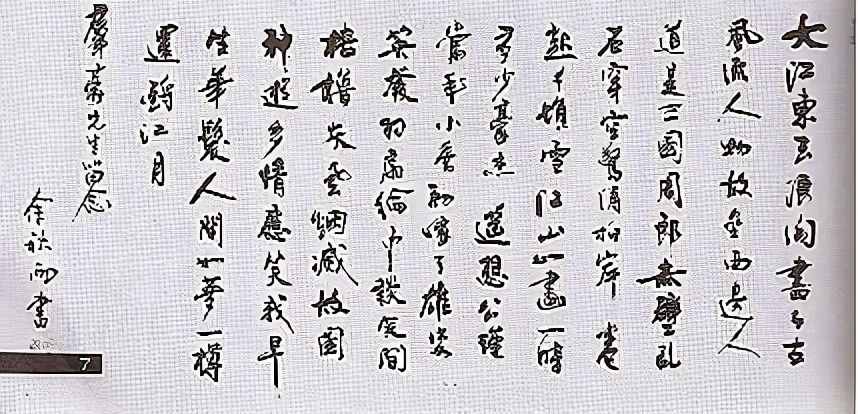 大江東去浪淘盡千古
風流人物故壘西邊人
道是三國周郎赤壁亂
石穿空驚濤拍岸卷
起千堆雪江山如畫一時
多少豪杰遙想公瑾
當年小喬初嫁了雄姿
英發羽扇綸巾談笑間
檣櫓灰飛煙滅故國
神遊多情應笑我早
生華髮人間如夢一樽
還酹江月
豪先生留念
余秋雨書
7